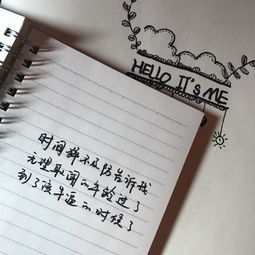 HELLO IT's ME
时间猝不及防告诉我
无理取闹的年龄过了
到了该牛逼的时候了